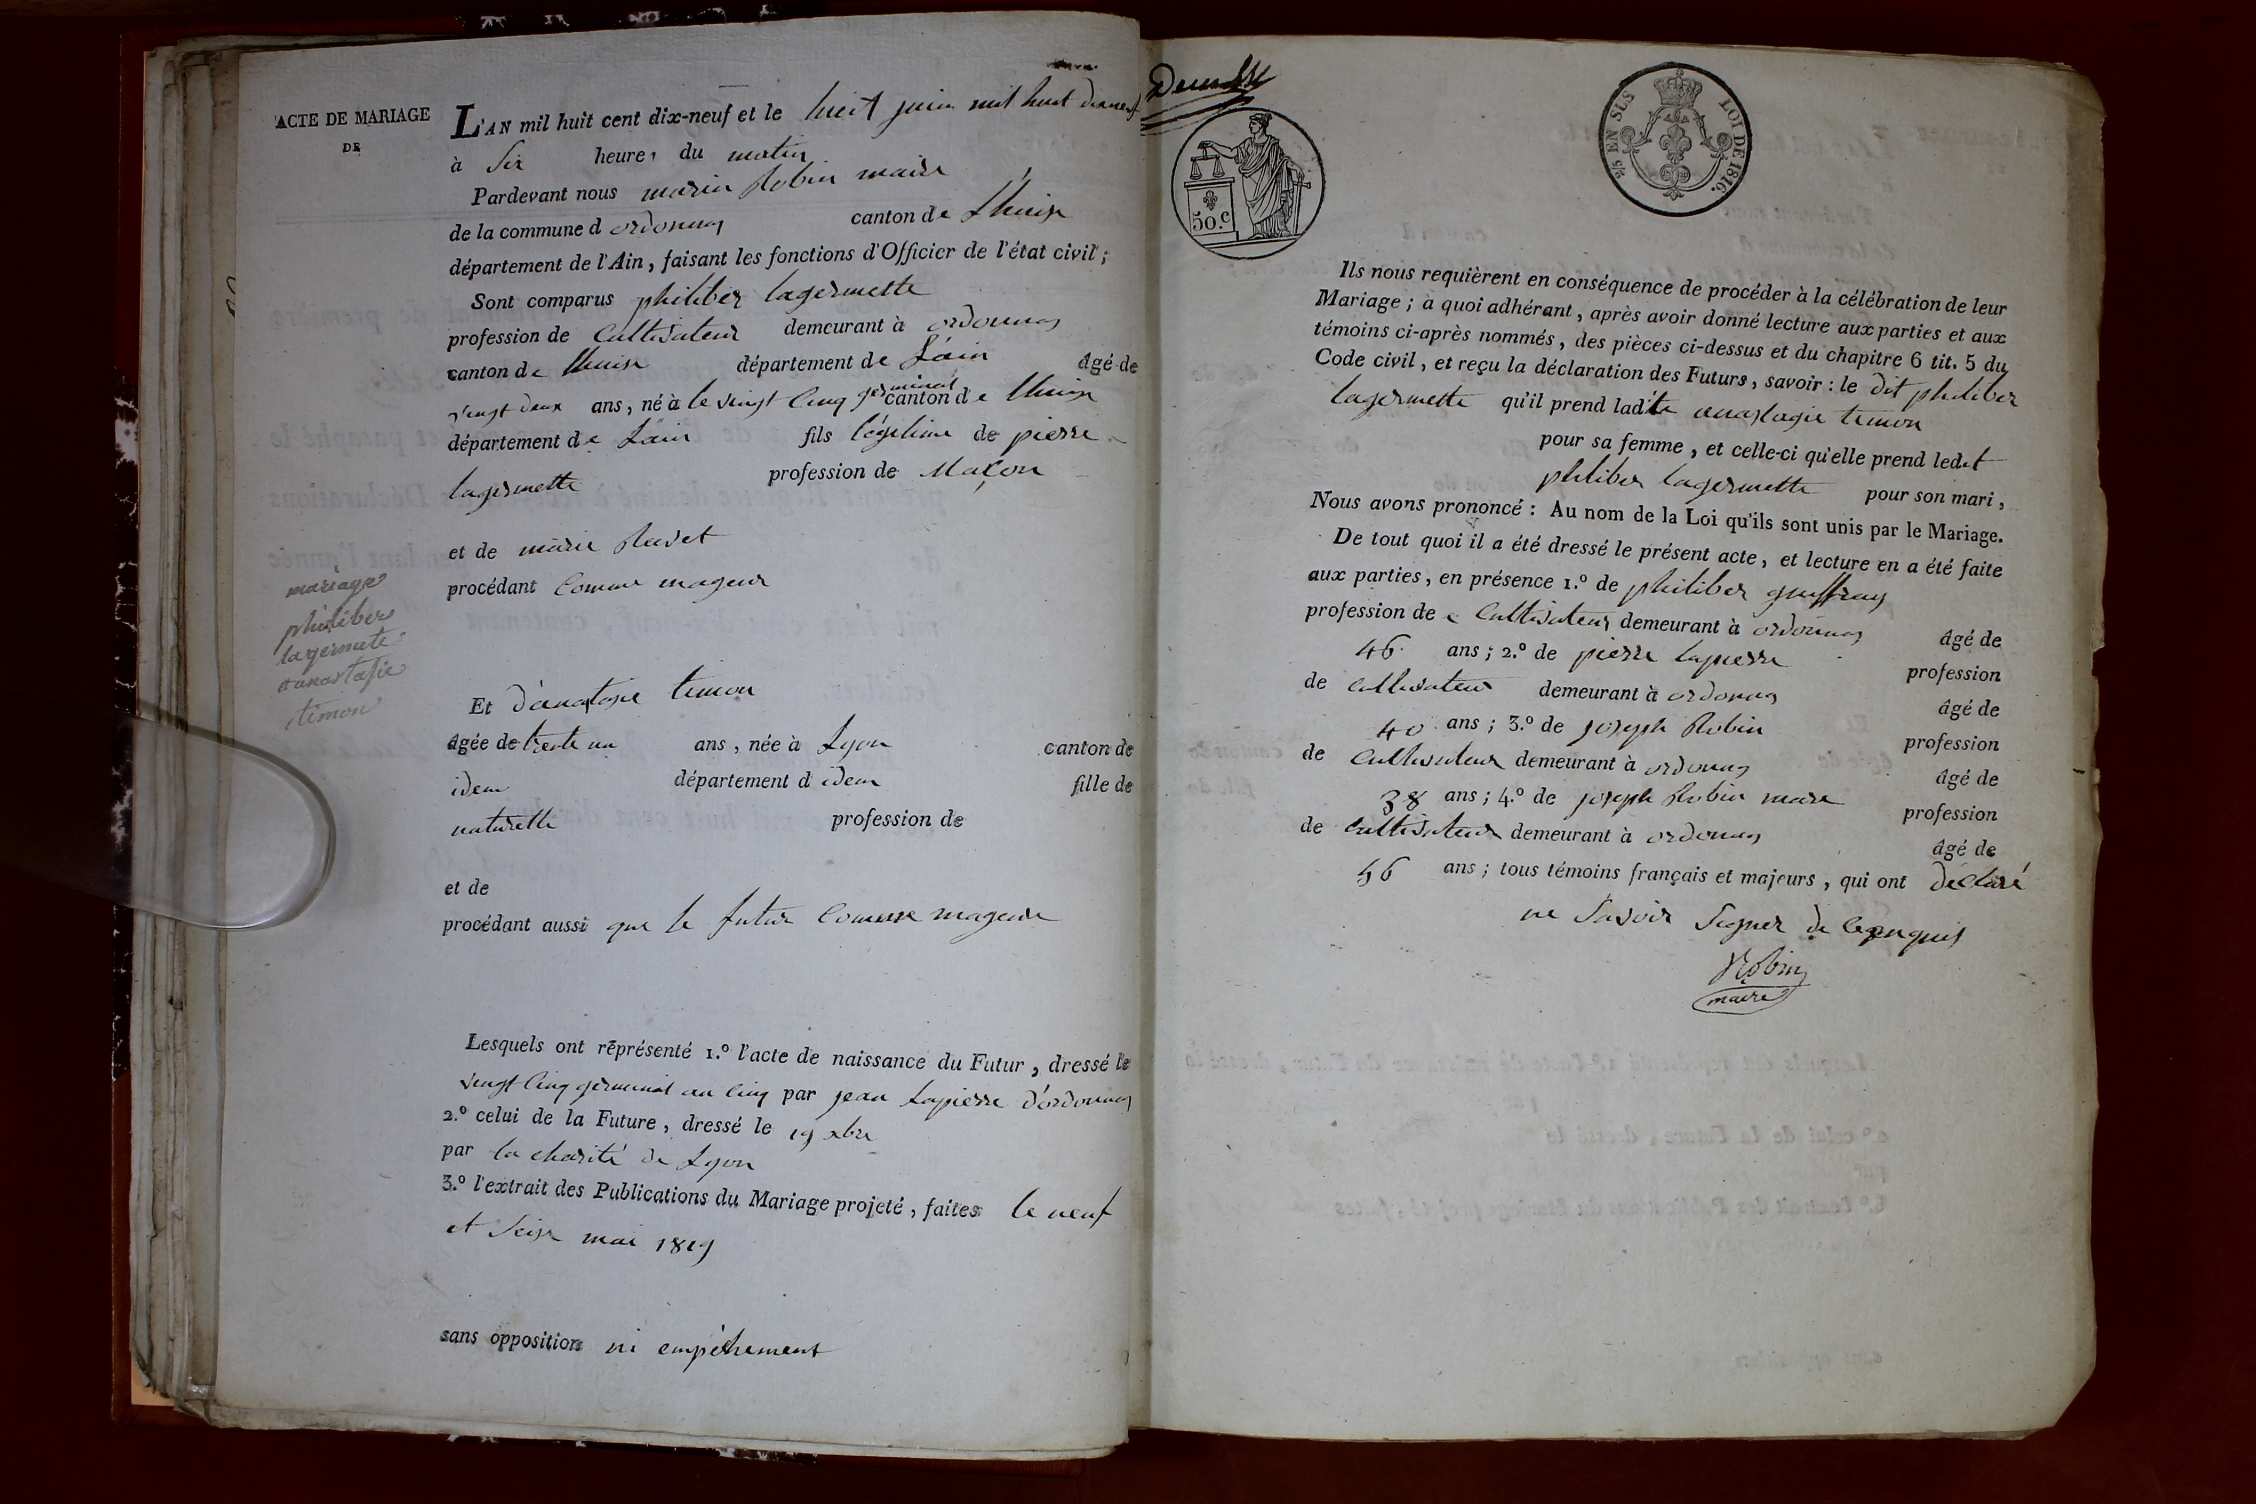 ACTE DE MARIAGE
DE
L'AN mil huit cent dix-neuf et le huit juin mil huit dixneuf
à Six heures du matin
Pardevant nous marin Robin maire
de la commune d ordonnas canton de Lhuis
département de l'Ain, faisant les fonctions d'Officier de l'état civil;
Sont comparus philiber lagermette
profession de Cultivateur demeurant à ordonnas
canton de lhuis département de L'ain âgé de
vingt deux ans, né à le vingt Cinq germinal canton de lhuis
département de L'ain fils légitime de pierre
lagermette profession de Maçon
et de marie Ravet
procédant Comme mageur
mariage
philiber
lagermete
et anastasie
timon
Et d'anastasie timon
âgée de trente un ans, née à Lyon canton de
idem département d idem fille de
naturelle profession de
et de
procédant aussi que le futur Comme mageure
Lesquels ont représenté 1.º l'acte de naissance du Futur, dressé le
vingt Cinq germinal an Cinq par jean Lapierre d'ordonnas
2.º celui de la Future, dressé le 19 xbre
par la charité de Lyon
3.º l'extrait des Publications du Mariage projeté, faites le neuf
et Seize mai 1819
sans opposition ni empêchement
50.c
25 EN SUS LOI DE 1816.
Ils nous requièrent en conséquence de procéder à la célébration de leur
Mariage; à quoi adhérant, après avoir donné lecture aux parties et aux
témoins ci-après nommés, des pièces ci-dessus et du chapitre 6 tit. 5 du
Code civil, et reçu la déclaration des Futurs, savoir: le dit philiber
lagermette qu'il prend ladite anastagie timon
pour sa femme, et celle-ci qu'elle prend ledit
philiber lagermette pour son mari,
Nous avons prononcé: Au nom de la Loi qu'ils sont unis par le Mariage.
De tout quoi il a été dressé le présent acte, et lecture en a été faite
aux parties, en présence 1.º de philiber guffray
profession de Cultivateur demeurant à ordonnas âgé de
46 ans; 2.º de pierre lapierre profession
de cultivateur demeurant à ordonnas âgé de
40 ans; 3.º de joseph Robin profession
de Cultivateur demeurant à ordonnas âgé de
38 ans; 4.º de joseph Robin profession
de Cultivateur demeurant à ordonnas âgé de
46 ans; tous témoins français et majeurs, qui ont déclaré
ne Savoir Signer de Ce
Robin
maire